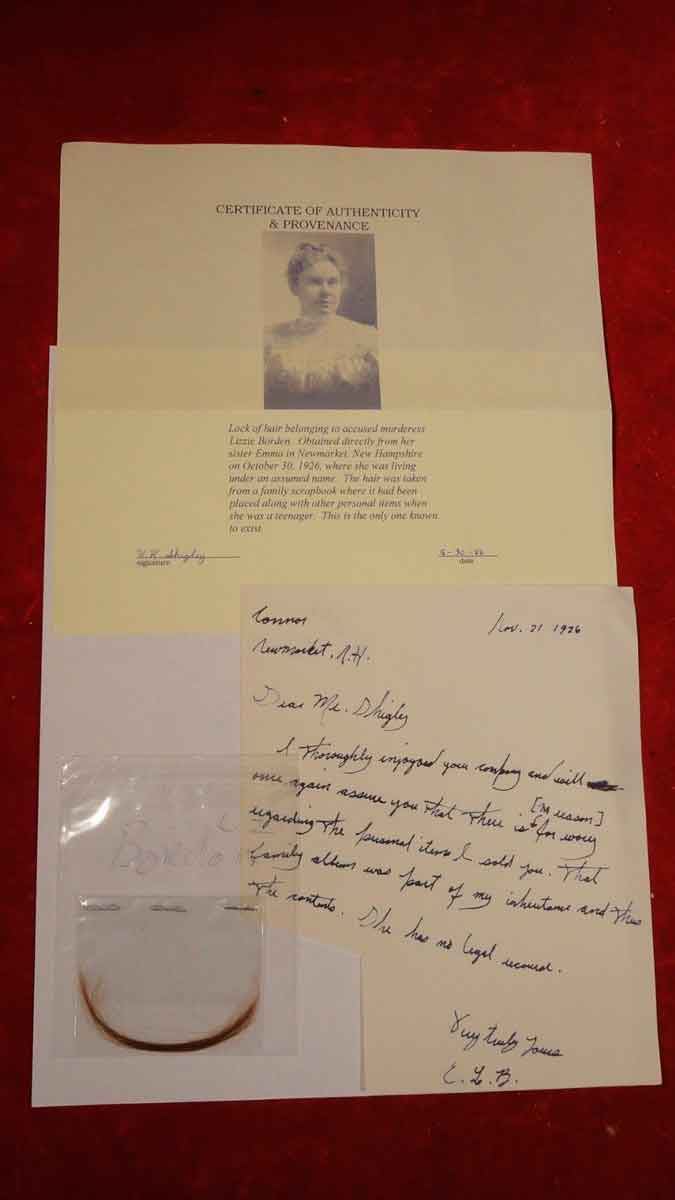 CERTIFICATE OF AUTHENTICITY
& PROVENANCE
Lock of hair belonging to accused murderess
Lizzie Borden. Obtained directly from her
sister Emma in Newmarket, New Hampshire
on October 30, 1926, where she was living
under an assumed name. The hair was taken
from a family scrapbook where it had been
placed along with other personal items when
she was a teenager. This is the only one known
to exist.
Shigley
signature
date
Connor
Nov. 21 1926
Newmarket, N.H.
Dear Mr. Shigley
I thoroughly injoyed your company and will
once again assure you that there is [no reason] for worry
regarding the personal items I sold you. That
family album was part of my inheritance and thus
the contents. She has no legal recourse.
Very truly yours
E. L. B.
Borden